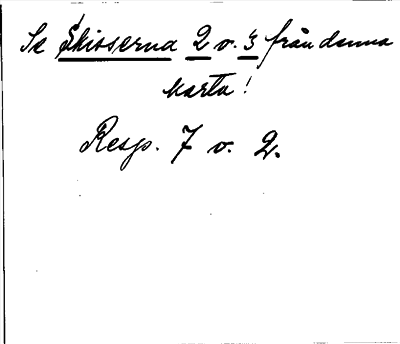 Se Skisserna 2 o. 3 från denna
karta!
Resp. 7 o. 2.